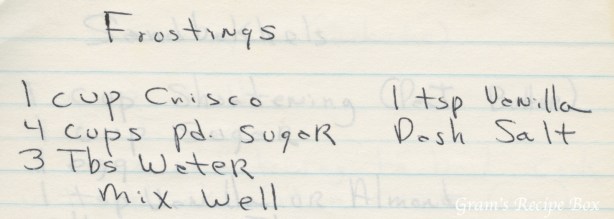 Frostings
1 cup Crisco 1 tsp Vanilla
4 cups pd. sugar Dash Salt
3 Tbs Water
mix well
Gram's Recipe Box